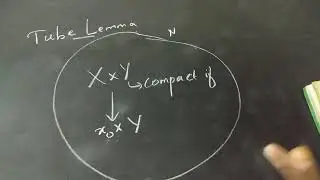 Tube Lemma
N
X x Y → compact if
↓
x₀ x Y